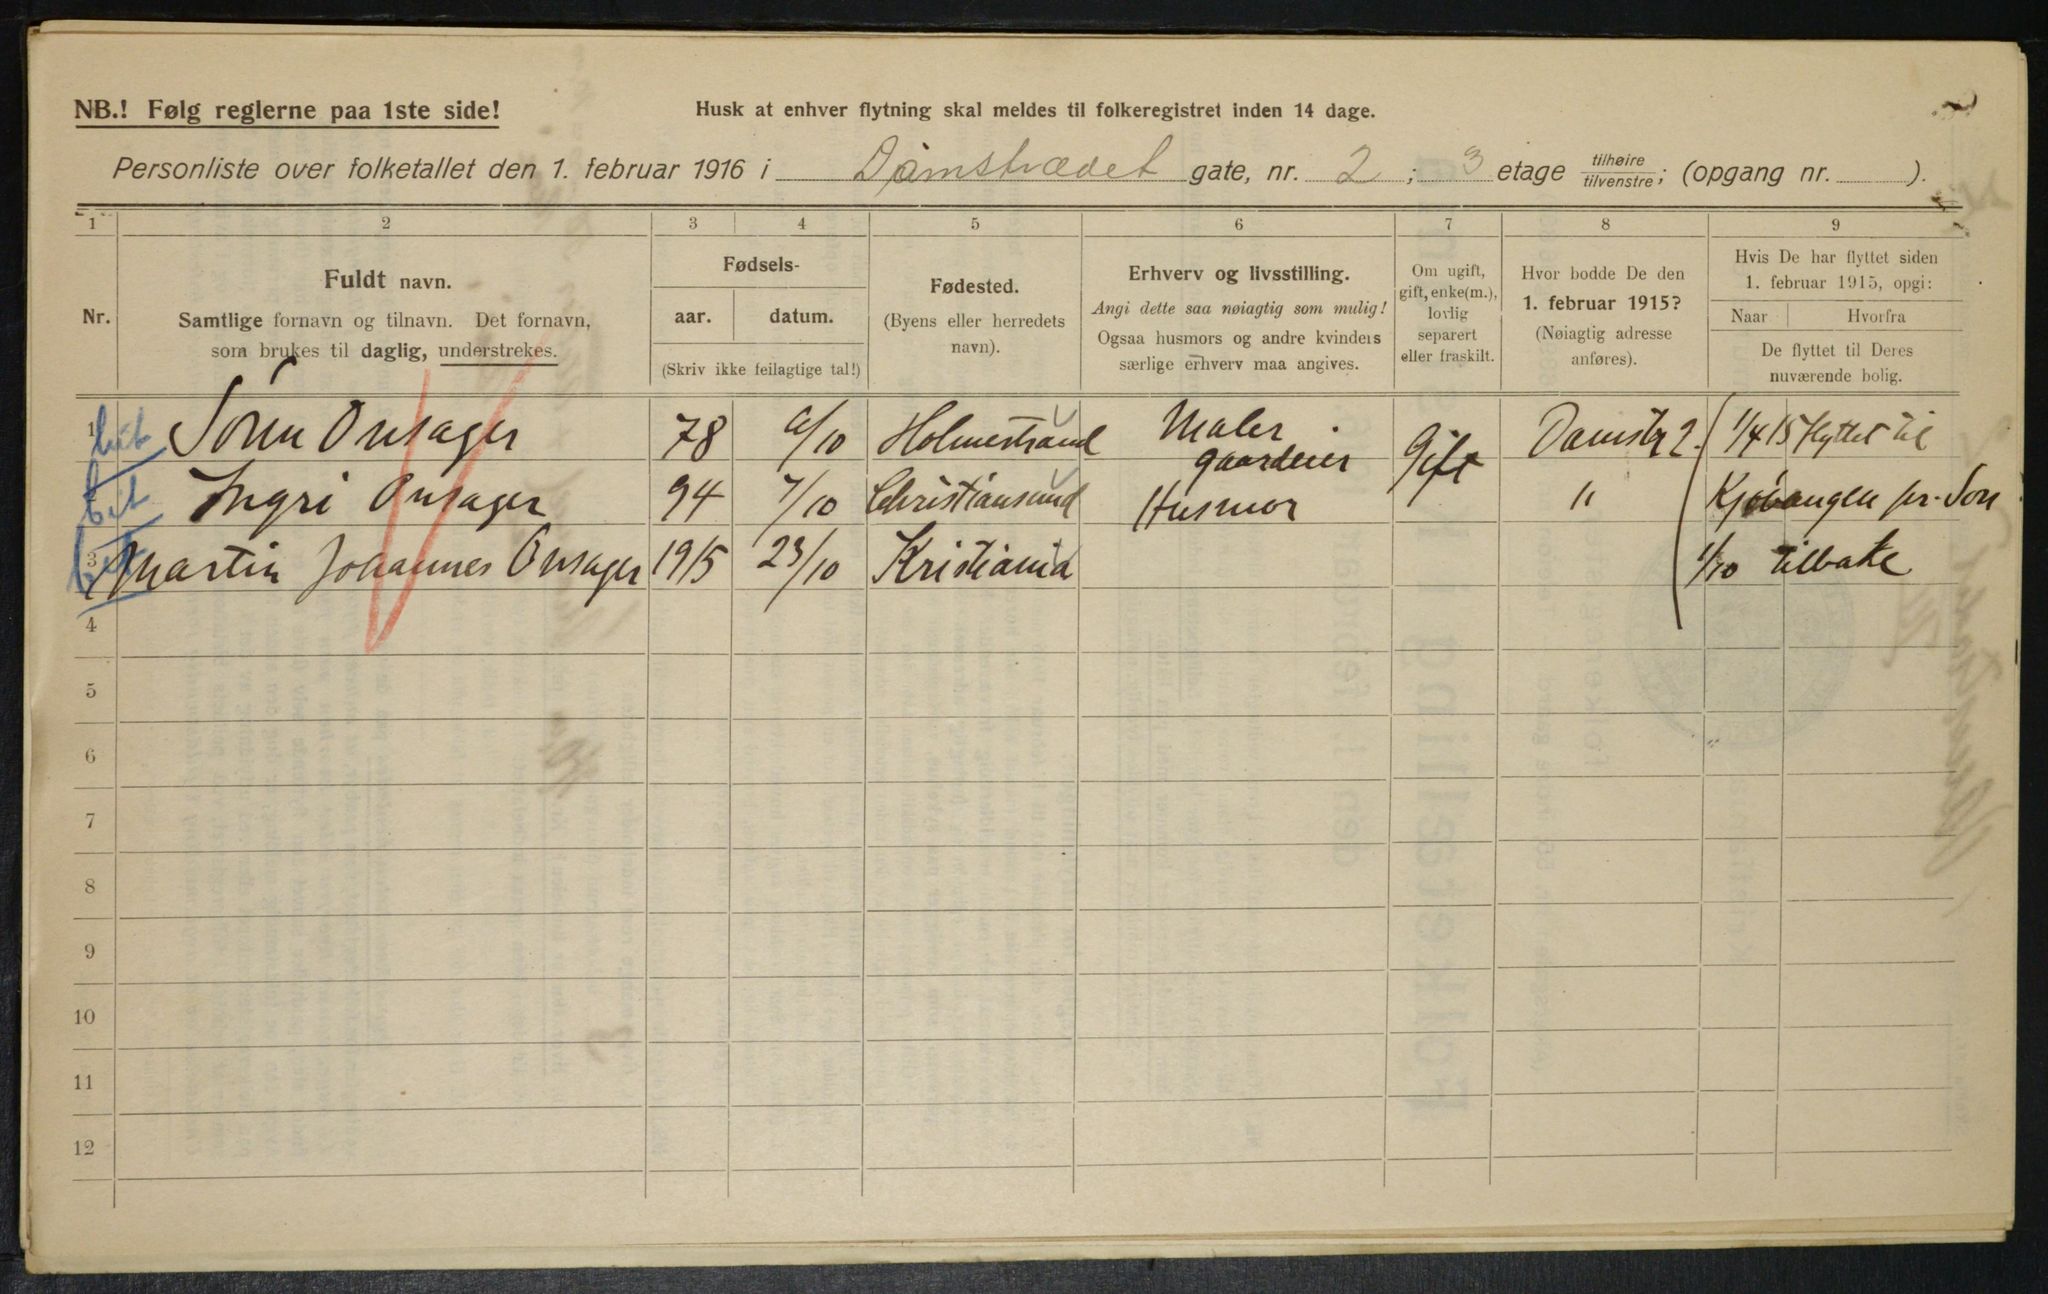 NB.! Følg reglerne paa 1ste side!
Husk at enhver flytning skal meldes til folkeregistret inden 14 dage.
Personliste over folketallet den 1. februar 1916 i Damstrædet gate, nr. 2; 3 etage tilhøire/tilvenstre; (opgang nr. ).
1 2 3 4 5 6 7 8 9
Nr.
Fuldt navn.
Samtlige fornavn og tilnavn. Det fornavn,
som brukes til daglig, understrekes.
Fødsels-
aar. datum.
(Skriv ikke feilagtige tal!)
Fødested.
(Byens eller herredets
navn).
Erhverv og livsstilling.
Angi dette saa nøiagtig som mulig!
Ogsaa husmors og andre kvinders
særlige erhverv maa angives.
Om ugift,
gift, enke(m.),
lovlig
separert
eller fraskilt.
Hvor bodde De den
1. februar 1915?
(Nøiagtig adresse
anføres).
Hvis De har flyttet siden
1. februar 1915, opgi:
Naar Hvorfra
De flyttet til Deres
nuværende bolig.
1 Sören Onsager 78 /10 Holmestrand Maler gaardeier Gift Damstr 2. 1/4 15 flyttet til
Ingri Onsager 94 7/10 Christiansund Husmor " Kjøbangen pr. Son
3 Martin Johannes Onsager 1915 23/10 Kristiania 1/10 tilbake
4
5
6
7
8
9
10
11
12